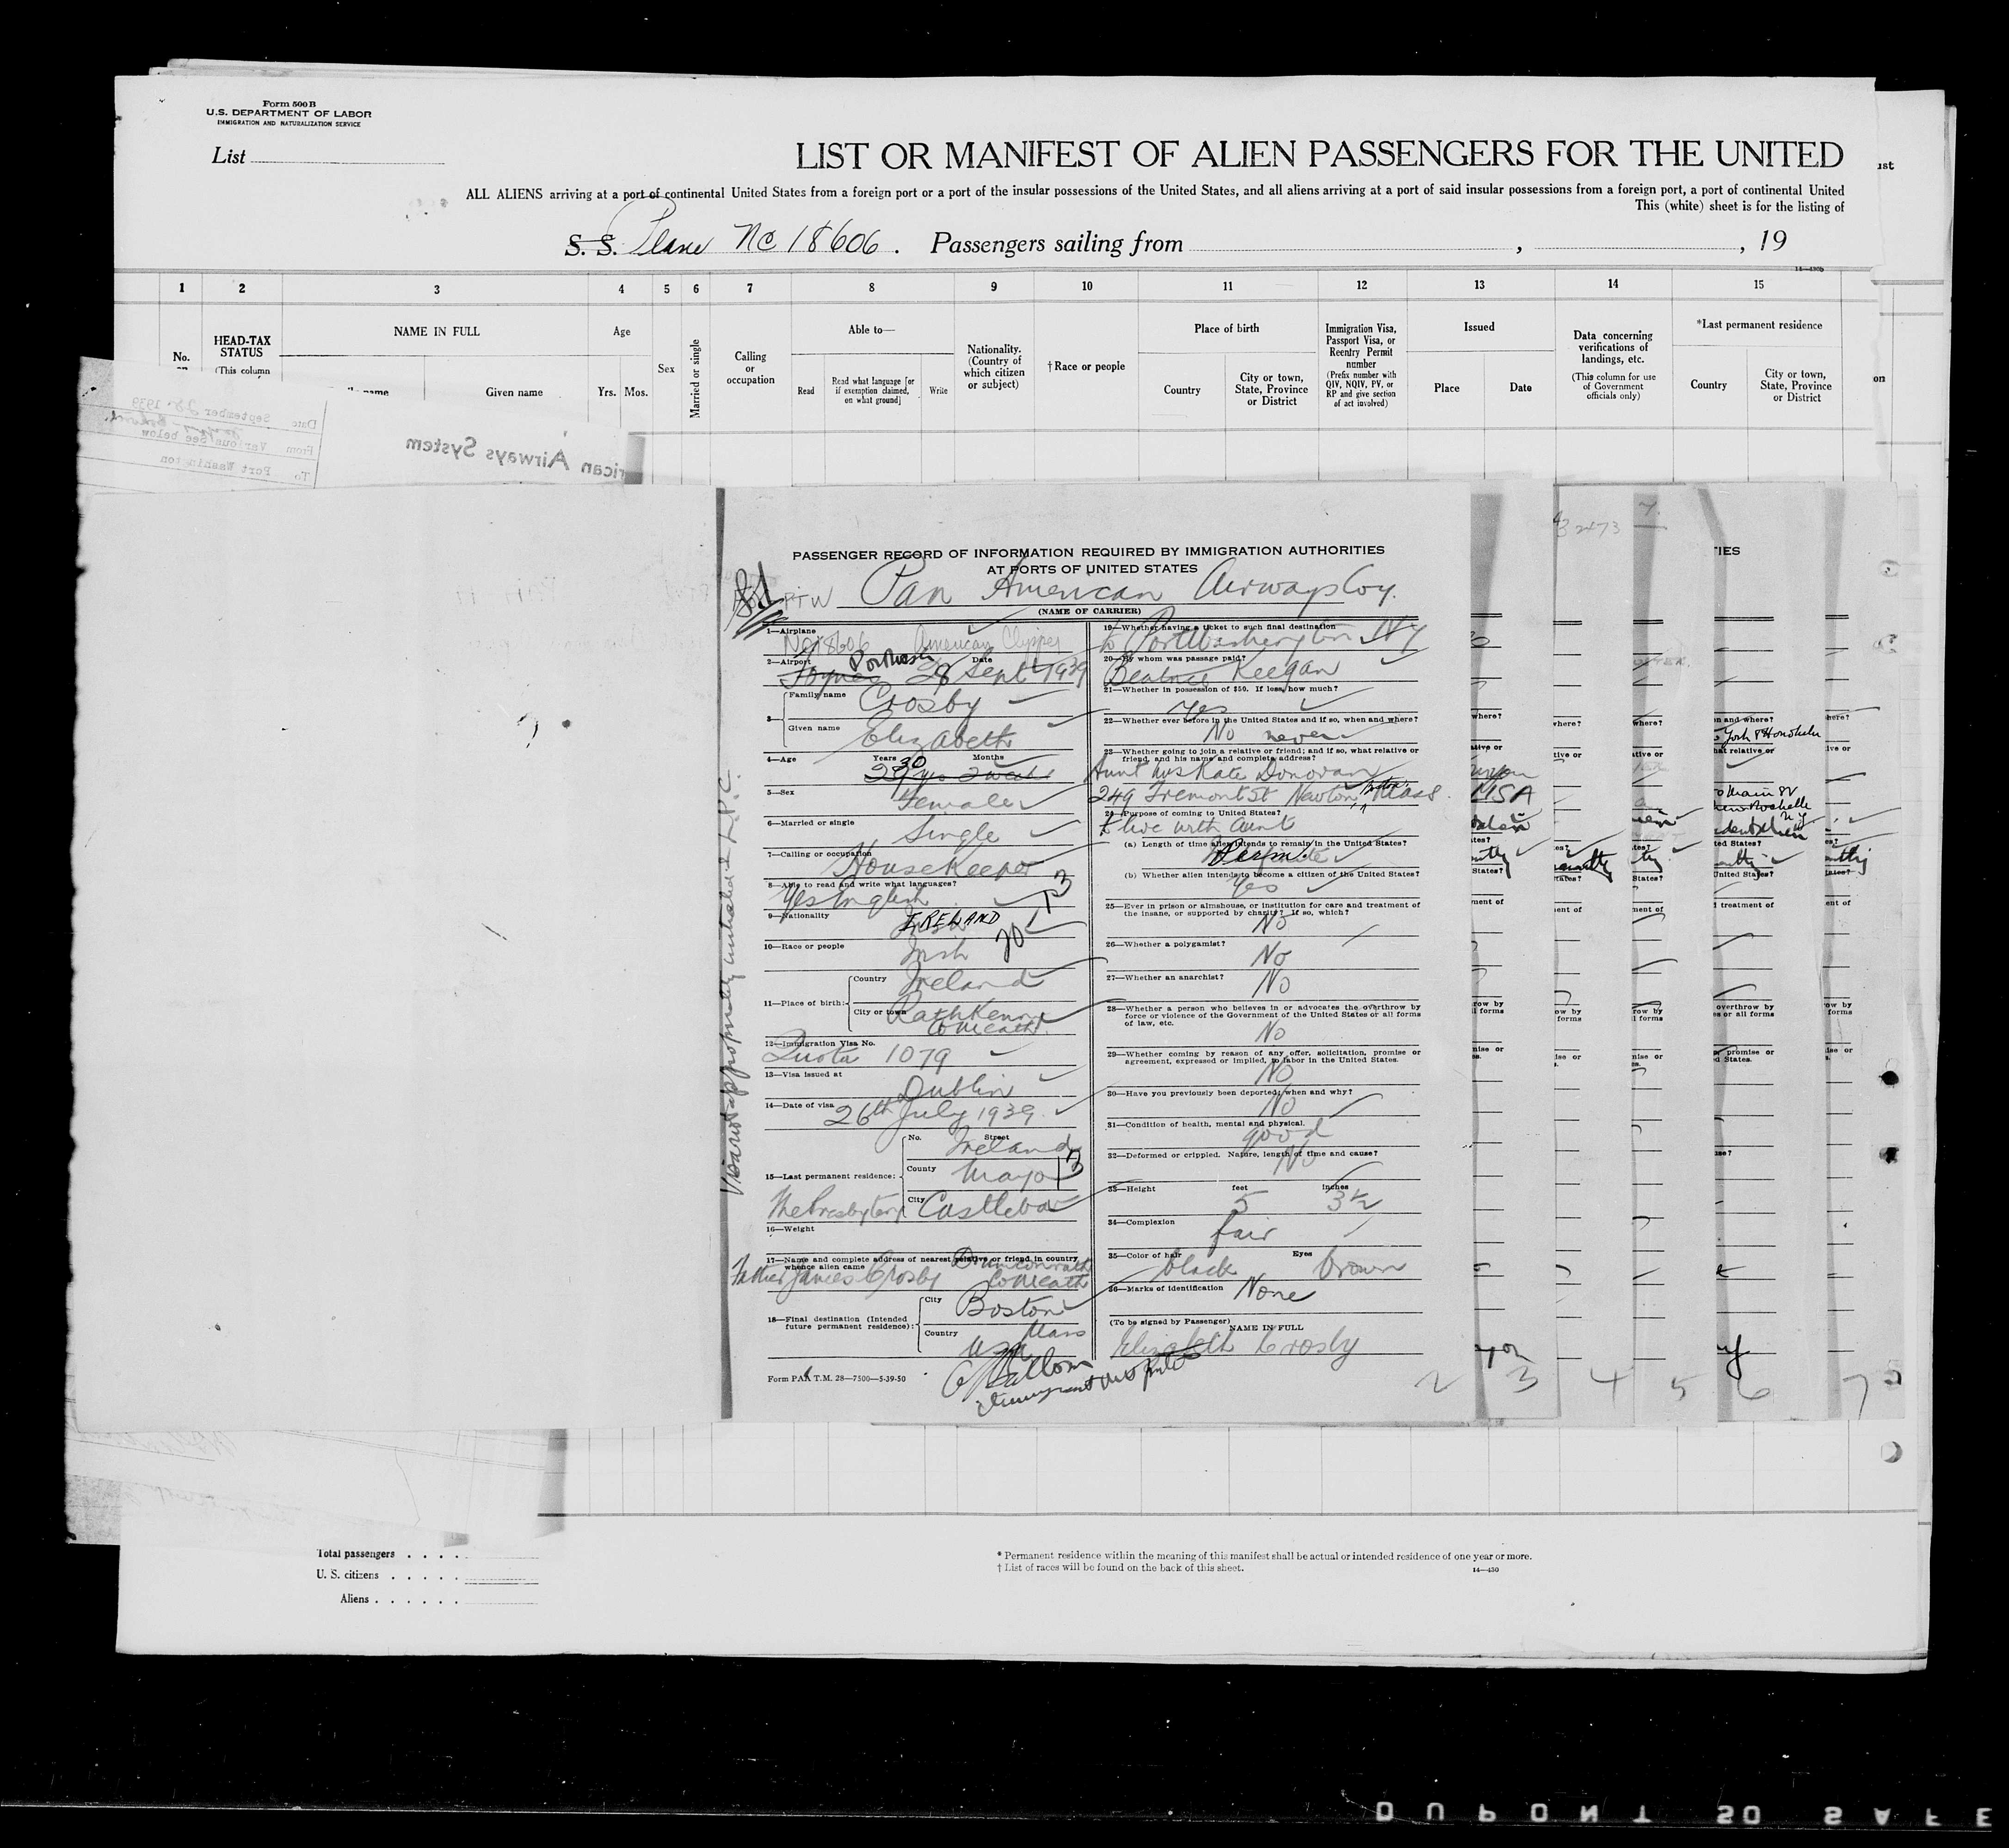 Form 500 B
U.S. DEPARTMENT OF LABOR
IMMIGRATION AND NATURALIZATION SERVICE
List
LIST OR MANIFEST OF ALIEN PASSENGERS FOR THE UNITED
ALL ALIENS arriving at a port of continental United States from a foreign port or a port of the insular possessions of the United States, and all aliens arriving at a port of said insular possessions from a foreign port, a port of continental United
This (white) sheet is for the listing of
S. S. Plane NC 18606. Passengers sailing from , , 19
1 2 3 4 5 6 7 8 9 10 11 12 13 14 15
No.
HEAD-TAX STATUS
(This column
NAME IN FULL
Given name
Age
Yrs. Mos.
Sex
Married or single
Calling or occupation
Able to—
Read
Read what language [or if exemption claimed, on what ground]
Write
Nationality. (Country of which citizen or subject)
† Race or people
Place of birth
Country
City or town, State, Province or District
Immigration Visa, Passport Visa, or Reentry Permit number
(Prefix number with QIV, NQIV, PV, or RP and give section of act involved)
Issued
Place
Date
Data concerning verifications of landings, etc.
(This column for use of Government officials only)
*Last permanent residence
Country
City or town, State, Province or District
Date September 28, 1939
From Various See below
To Port Washington
rican Airways System
PASSENGER RECORD OF INFORMATION REQUIRED BY IMMIGRATION AUTHORITIES
AT PORTS OF UNITED STATES
PTW Pan American Airways Coy.
(NAME OF CARRIER)
1—Airplane
NC18606 American Clipper
2—Airport Date
Foynes Port Wash 28 Sept 1939
3— Family name Crosby
Given name Elizabeth
4—Age Years Months
30
5—Sex Female
6—Married or single Single
7—Calling or occupation Housekeeper
8—Able to read and write what languages?
Yes English
9—Nationality IRELAND
10—Race or people Irish
11—Place of birth: Country Ireland
City or town Rathkenny
Co Meath
12—Immigration Visa No.
Quota 1079
13—Visa issued at Dublin
14—Date of visa 26th July 1939
15—Last permanent residence: No. Street Ireland
County Mayo
The Presbytery City Castlebar
16—Weight
17—Name and complete address of nearest relative or friend in country whence alien came
Father James Crosby Drumconrath
Co Meath
18—Final destination (Intended future permanent residence): City Boston
Country Mass
USA
Form PAA T.M. 28—7500—5-39-50
19—Whether having a ticket to such final destination
to Port Washington NY
20—By whom was passage paid?
Beatrice Keegan
21—Whether in possession of $50. If less, how much?
Yes
22—Whether ever before in the United States and if so, when and where?
No never
23—Whether going to join a relative or friend; and if so, what relative or friend, and his name and complete address?
Aunt Mrs Kate Donovan
249 Tremont St Newton Mass
24—Purpose of coming to United States?
to live with aunt
(a) Length of time alien intends to remain in the United States?
Perm.
(b) Whether alien intends to become a citizen of the United States?
Yes
25—Ever in prison or almshouse, or institution for care and treatment of the insane, or supported by charity? If so, which?
No
26—Whether a polygamist?
No
27—Whether an anarchist?
No
28—Whether a person who believes in or advocates the overthrow by force or violence of the Government of the United States or all forms of law, etc.
No
29—Whether coming by reason of any offer, solicitation, promise or agreement, expressed or implied, to labor in the United States.
No
30—Have you previously been deported; when and why?
No
31—Condition of health, mental and physical.
good
32—Deformed or crippled. Nature, length of time and cause?
No
33—Height feet inches
5 3½
34—Complexion
fair
35—Color of hair Eyes
black brown
36—Marks of identification None
(To be signed by Passenger)
NAME IN FULL
Elizabeth Crosby
2 3 4 5 6 7
Total passengers
U. S. citizens
Aliens
* Permanent residence within the meaning of this manifest shall be actual or intended residence of one year or more.
† List of races will be found on the back of this sheet.
14—430
DUPONT SO SAFE